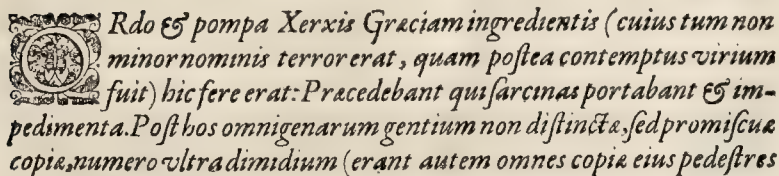 ORdo & pompa Xerxis Græciam ingredientis (cuius tum non
minor nominis terror erat, quam postea contemptus virium
fuit) hic fere erat: Præcedebant qui sarcinas portabant & im-
pedimenta. Post hos omnigenarum gentium non distinctæ, sed promiscuæ
copiæ, numero vltra dimidium (erant autem omnes copiæ eius pedestres